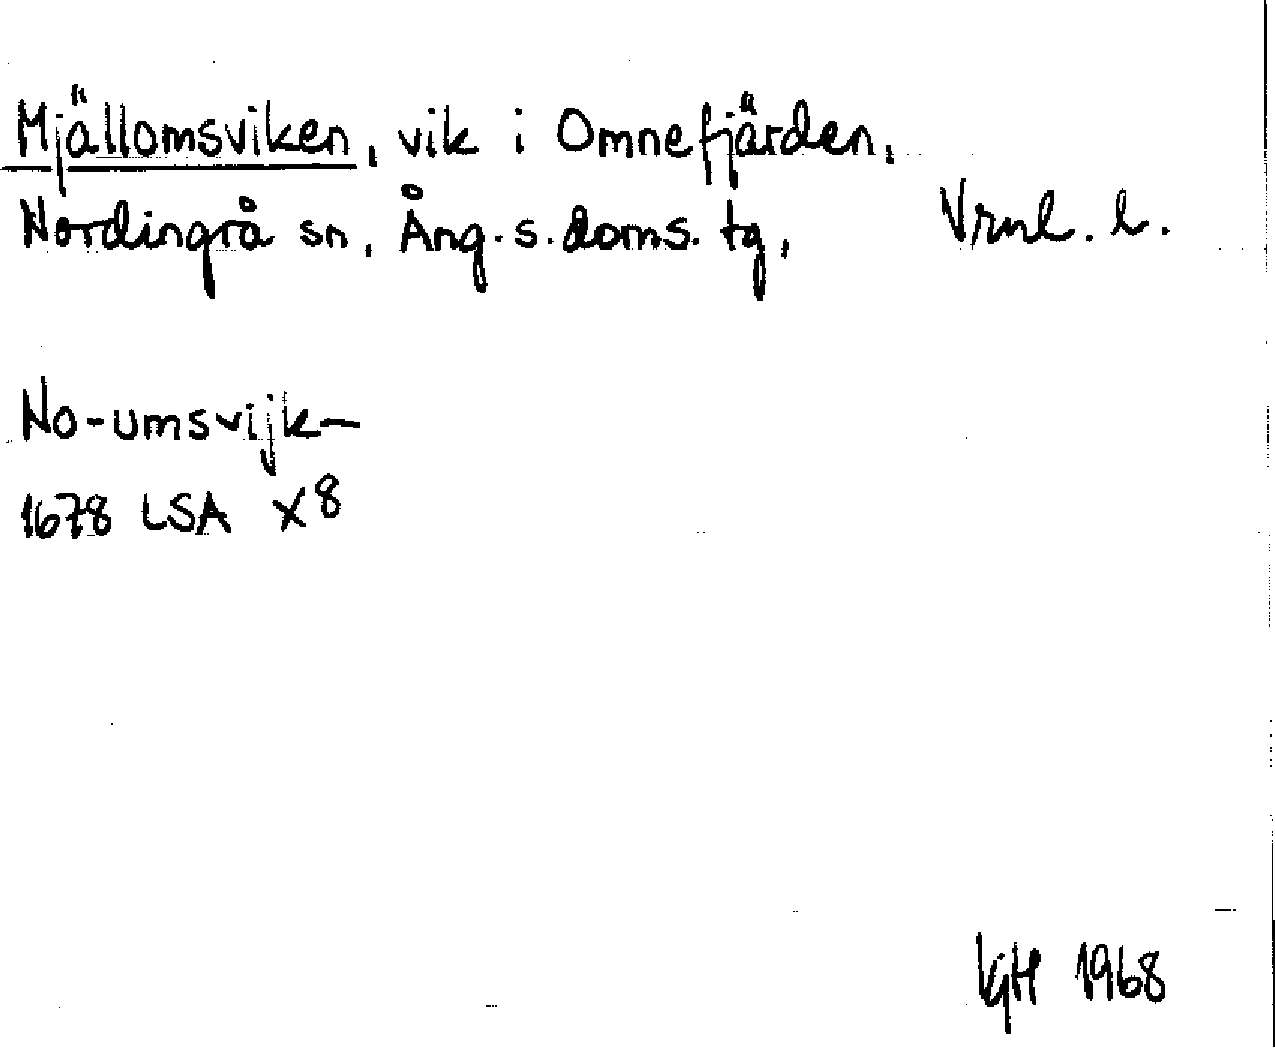 Mjällomsviken, vik i Omnefjärden,
Nordingrå sn, Ång. s. doms. tg,
Vrnl. l.
No-umsvijk-
1678 LSA X8
KGH 1968